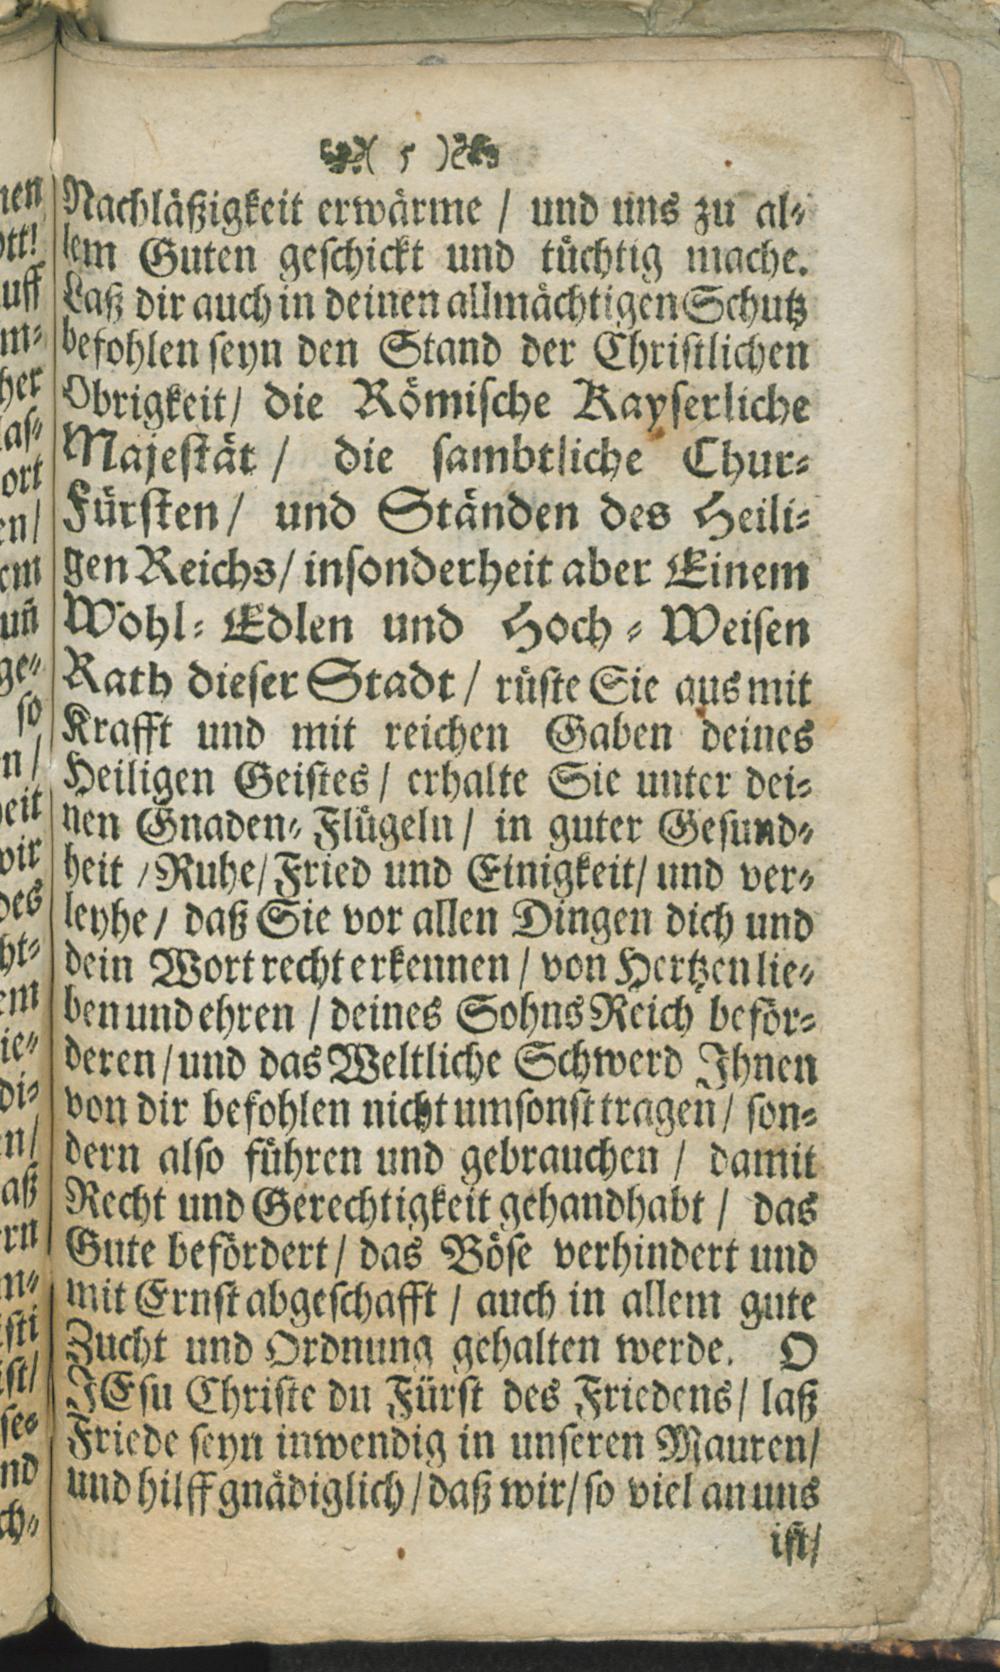 ( 5 )
Nachläßigkeit erwärme / und uns zu al-
lem Guten geschickt und tüchtig mache.
Laß dir auch in deinen allmächtigen Schutz
befohlen seyn den Stand der Christlichen
Obrigkeit/ die Römische Kayserliche
Majestät / die sambtliche Chur-
Fürsten / und Ständen des Heili-
gen Reichs / insonderheit aber Einem
Wohl- Edlen und Hoch - Weisen
Rath dieser Stadt / rüste Sie aus mit
Krafft und mit reichen Gaben deines
Heiligen Geistes / erhalte Sie unter dei-
nen Gnaden- Flügeln / in guter Gesund-
heit / Ruhe / Fried und Einigkeit / und ver-
leyhe / daß Sie vor allen Dingen dich und
dein Wort recht erkennen / von Hertzen lie-
ben und ehren / deines Sohns Reich beför-
deren / und das Weltliche Schwerd Ihnen
von dir befohlen nicht umsonst tragen / son-
dern also führen und gebrauchen / damit
Recht und Gerechtigkeit gehandhabt / das
Gute befördert / das Böse verhindert und
mit Ernst abgeschafft / auch in allem gute
Zucht und Ordnung gehalten werde. O
JEsu Christe du Fürst des Friedens / laß
Friede seyn inwendig in unseren Mauren /
und hilff gnädiglich / daß wir / so viel an uns
ist /